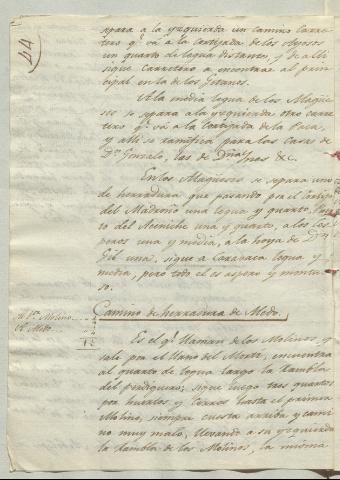 44
separa á la yzquierda un camino Carre-
tero q.e vá á la Cortijada de los Royosos
un quarto de legua distantes, y de alli
sigue Carretero á encontrar al prin-
cipal en la de los Gitanos.
A la media legua de los Magüe-
ses se separa á la yzquierda otro carre-
tero q.e vá á la Cortijada de la Paca,
y alli se ramifica para las Casas de
D.n Gonzalo, las de Doña Ynes &c.
En los Magüeses se separa uno
de herradura que pasando por el Cortijo
del Madroño una legua y quarto,
to del una y quarto, á los
peros una y media, á la hoya de D.n
Gil una, sigue á Caravaca legua y
media, pero todo él es aspero y montu-
so.
Camino de herradura de Vledo.
Al 1.er Molino
A Vledo
Es el q.e llaman de los Molinos, y
sale por el llano del Monte, encuentra
al quarto de legua largo la Rambla
del perdiguero; sigue luego tres quartos
por huertos y Cerros hasta el primer
Molino, siempre cuesta arriba y cami-
no muy malo, llevando á su yzquierda
la Rambla de los Molinos, la misma